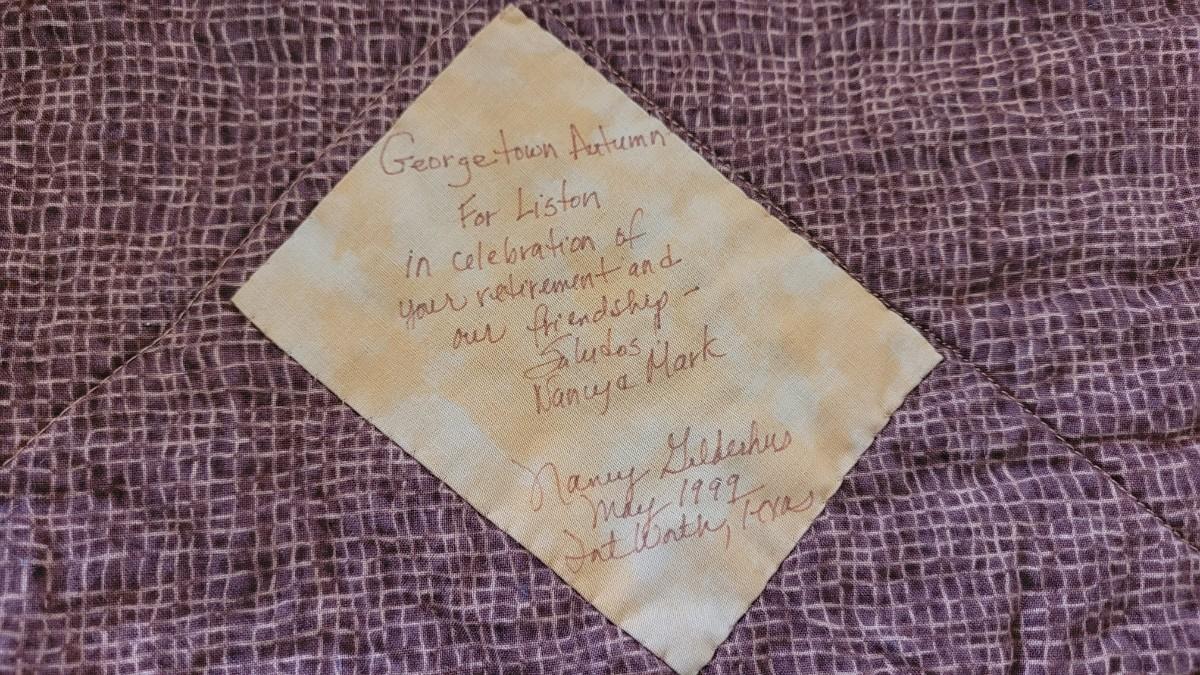 Georgetown Autumn
For Liston
in celebration of
your retirement and
our friendship -
Saludos
Nancy & Mark
Nancy Gilderhus
May 1999
Fort Worth, Texas